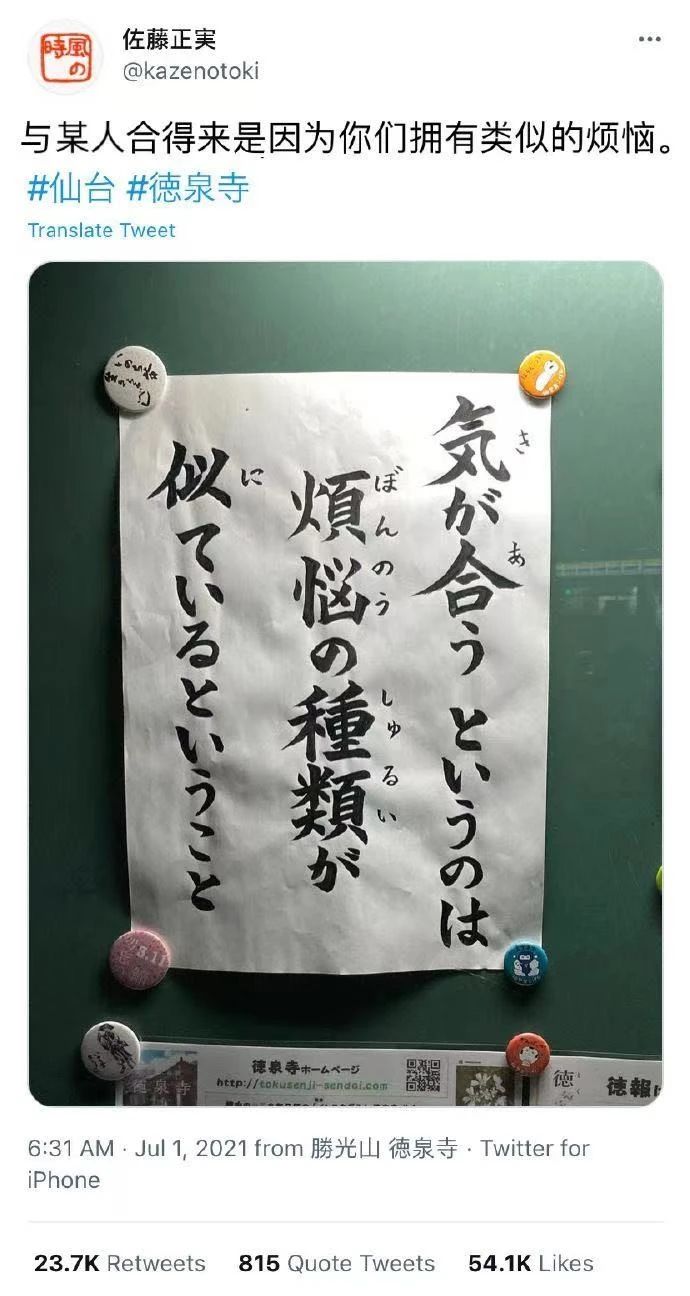 時風の
佐藤正実
@kazenotoki
与某人合得来是因为你们拥有类似的烦恼。
#仙台 #徳泉寺
Translate Tweet
気が合うというのは
き
あ
煩悩の種類が
ぼんのう
しゅるい
似ているということ
に
3.11
徳泉寺
徳泉寺ホームページ
http://tokusenji-sendai.com
徳
とく
徳報
6:31 AM · Jul 1, 2021 from 勝光山 徳泉寺 · Twitter for
iPhone
23.7K Retweets 815 Quote Tweets 54.1K Likes